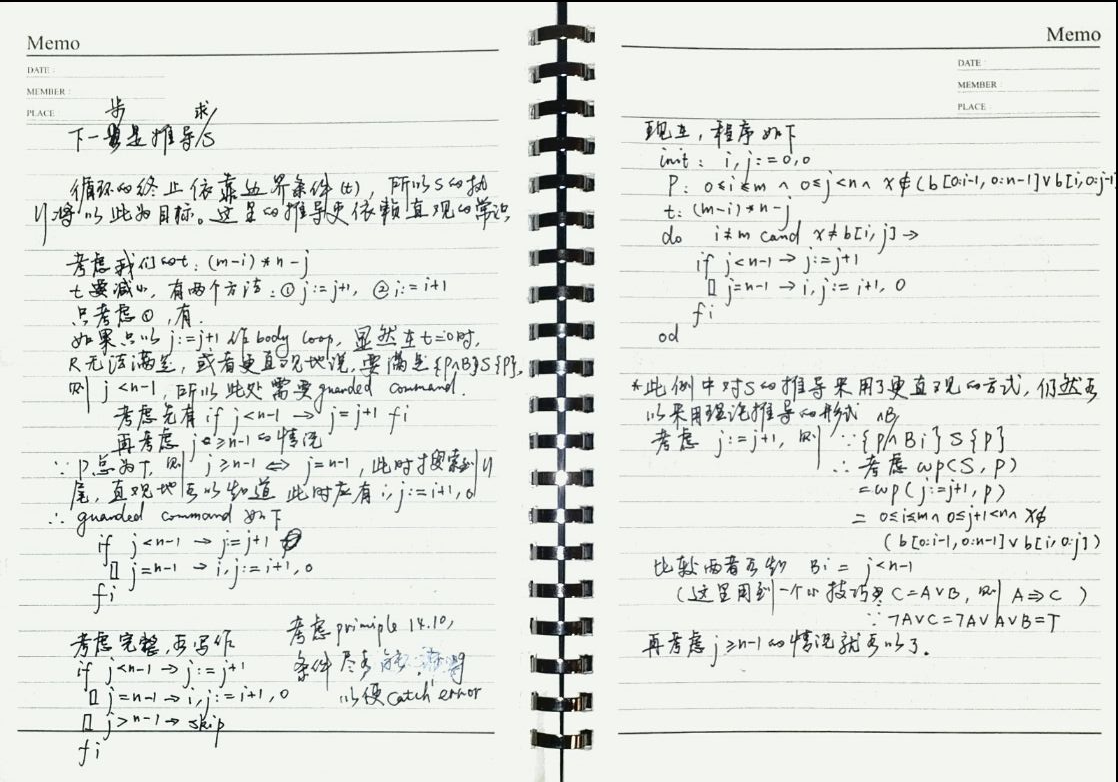 Memo
DATE :
MEMBER :
PLACE
下一步是推导/求S
循环的终止依靠边界条件(t), 所以S的执
行将以此为目标。这里的推导更依赖直观的常识
考虑我们的t: (m-i)*n-j
t要减小, 有两个方法: ① j:=j+1, ② i:=i+1
只考虑①, 有.
如果只以 j:=j+1 作 body loop, 显然在t=0时,
R无法满足, 或者更直观地说, 要满足{P∧B}S{P},
则 j<n-1, 所以此处需要guarded command.
考虑先有 if j<n-1 → j=j+1 fi
再考虑 j≥n-1的情况
∵ P总为T, 则 j≥n-1 ⇔ j=n-1, 此时搜索到行
尾, 直观地可以知道 此时应有 i,j:=i+1,0
∴ guarded command 如下
if j<n-1 → j=j+1
▯ j=n-1 → i,j:=i+1,0
fi
考虑完整, 可写作
if j<n-1 → j:=j+1
▯ j=n-1 → i,j:=i+1,0
▯ j>n-1 → skip
fi
考虑priniple 14.10,
条件尽可能
以便catch error
Memo
DATE :
MEMBER :
PLACE :
现在, 程序如下
init: i,j:=0,0
P: 0≤i≤m ∧ 0≤j<n ∧ x∉(b[0:i-1, 0:n-1]∨b[i,0:j-1]
t: (m-i)*n-j
do i≠m cand x≠b[i,j] →
if j<n-1 → j:=j+1
▯ j=n-1 → i,j:=i+1, 0
fi
od
*此例中对S的推导采用了更直观的方式, 仍然可
以采用理论推导的形式 ∧B
考虑 j:=j+1, 则 ∵{P∧Bi}S{P}
∴ 考虑 wp(S, P)
=wp(j:=j+1, P)
= 0≤i≤m∧ 0≤j+1<n∧ x∉
(b[0:i-1,0:n-1]∨b[i,0:j])
比较两者可知 Bi = j<n-1
(这里用到一个小技巧 C=A∨B, 则 A⇒C )
∵ ¬A∨C=¬A∨A∨B=T
再考虑 j≥n-1的情况就可以了.